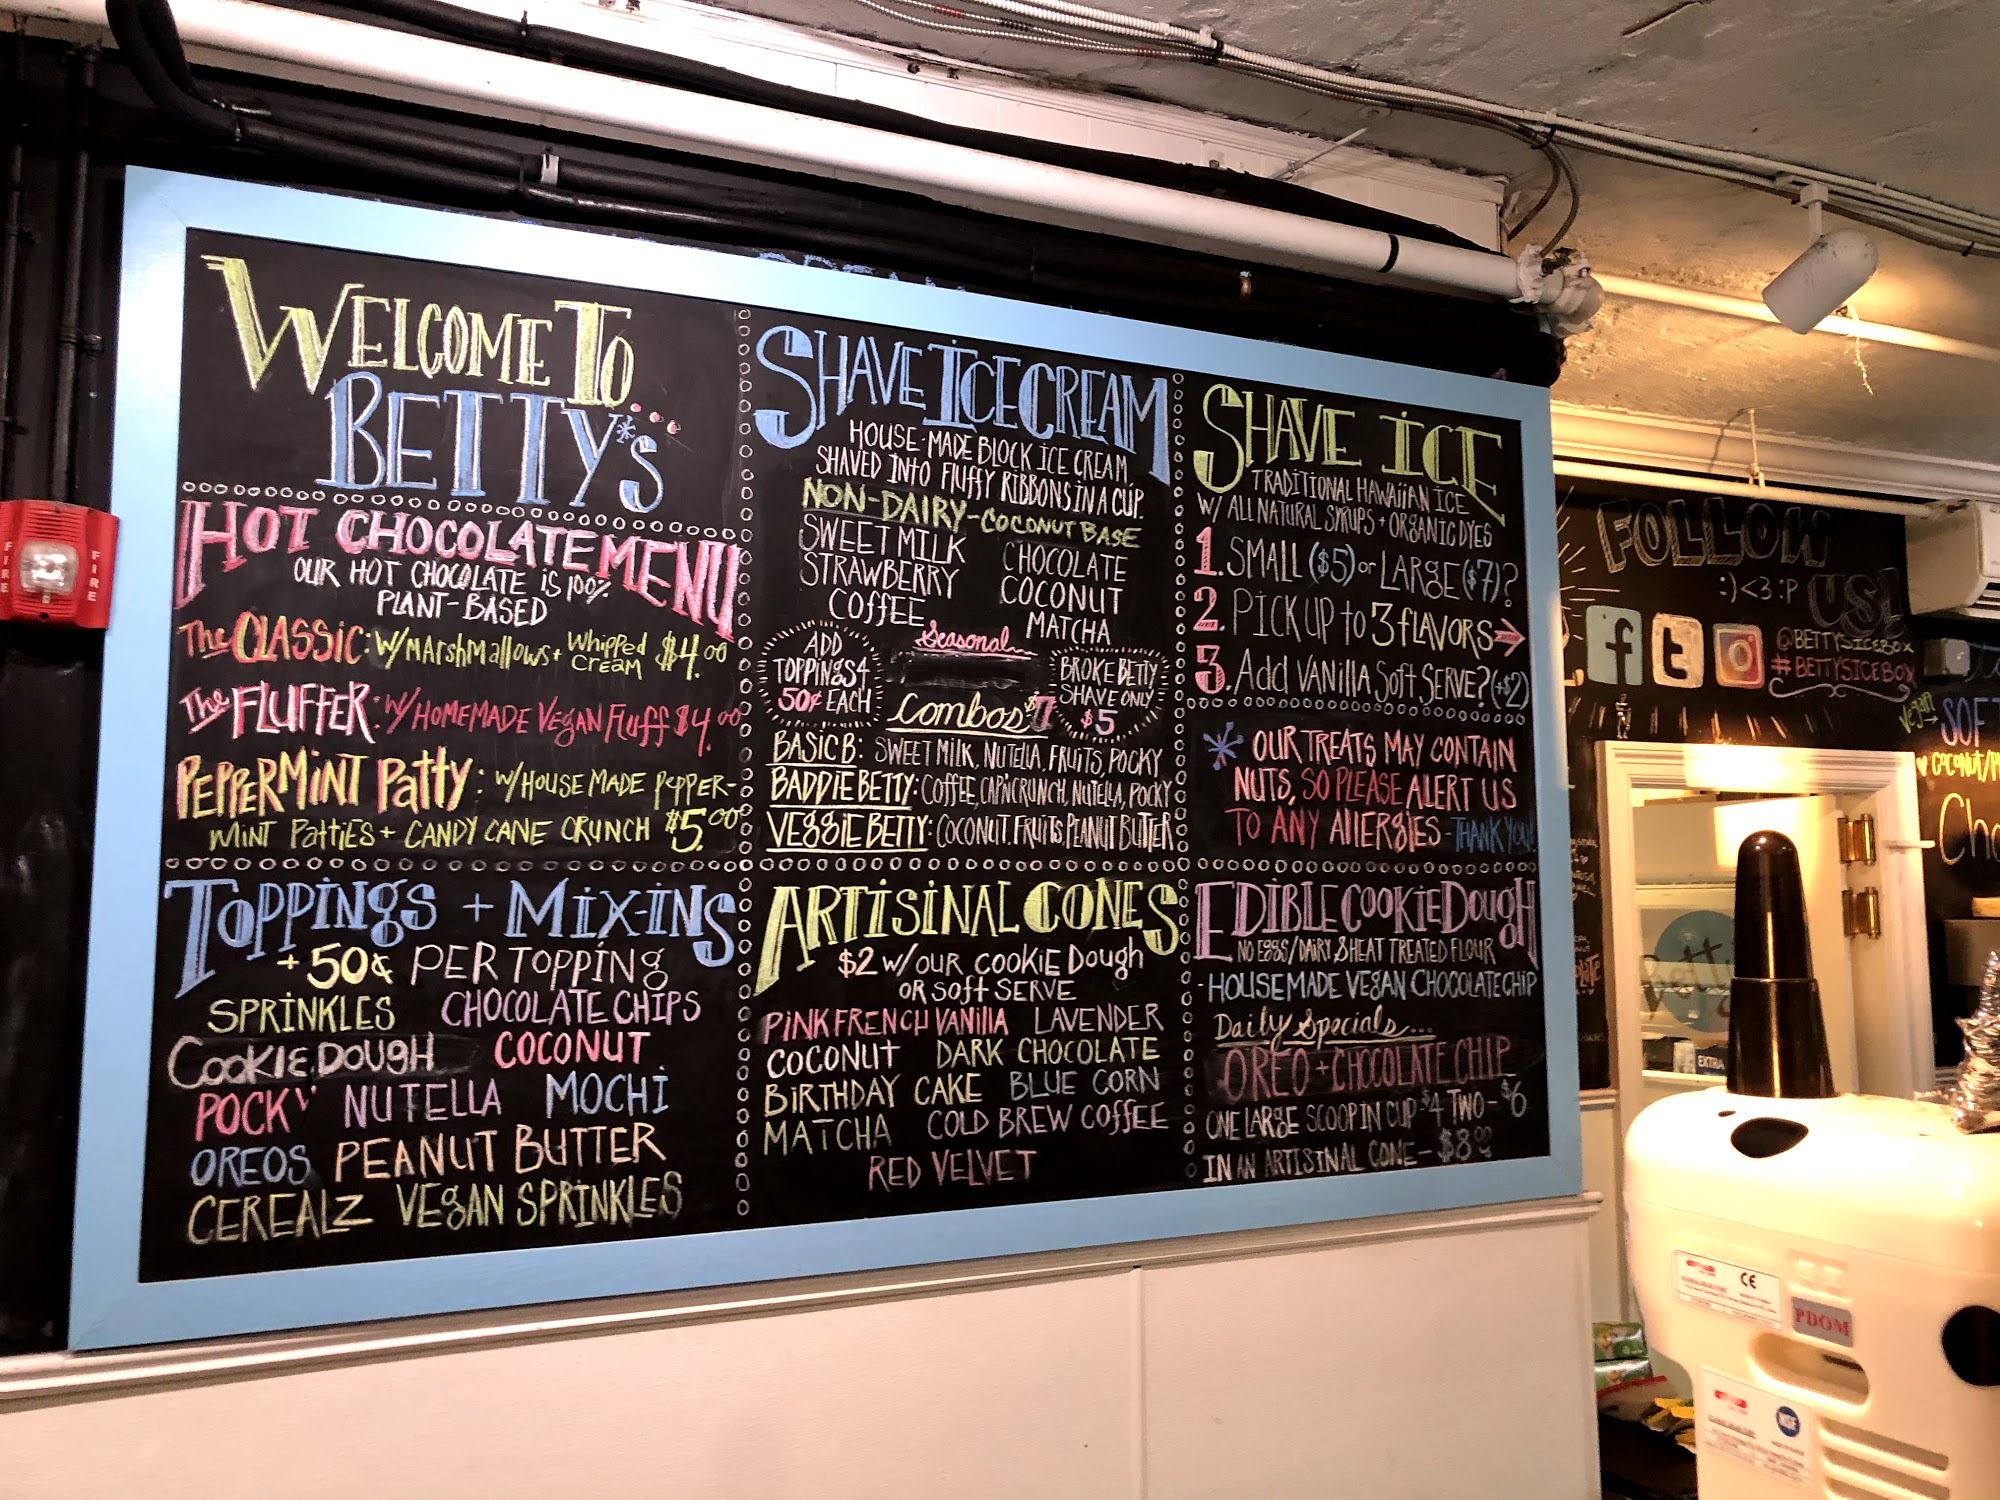 WELCOME TO
BETTY'S
HOT CHOCOLATE MENU
OUR HOT CHOCOLATE IS 100%
PLANT-BASED
The CLASSIC: W/ MARSHMALLOWS + WHIPPED CREAM $4.00
The FLUFFER: W/ HOMEMADE VEGAN FLUFF $4.00
PEPPERMINT PATTY: W/ HOUSE MADE PEPPER-
MINT PATTIES + CANDY CANE CRUNCH $5.00
TOPPINGS + MIX-INS
+ 50¢ PER TOPPING
SPRINKLES CHOCOLATE CHIPS
COOKIE DOUGH COCONUT
POCKY NUTELLA MOCHI
OREOS PEANUT BUTTER
CEREALZ VEGAN SPRINKLES
SHAVE ICE CREAM
HOUSE-MADE BLOCK ICE CREAM,
SHAVED INTO FLUFFY RIBBONS IN A CUP.
NON-DAIRY-COCONUT BASE
SWEET MILK CHOCOLATE
STRAWBERRY COCONUT
COFFEE MATCHA
Seasonal
ADD
TOPPINGS 4
50¢ EACH
BROKE BETTY
SHAVE ONLY
$5
Combos $7
BASIC B: SWEET MILK, NUTELLA, FRUITS, POCKY
BADDIE BETTY: COFFEE, CAP'N CRUNCH, NUTELLA, POCKY
VEGGIE BETTY: COCONUT. FRUITS, PEANUT BUTTER
ARTISINAL CONES
$2 W/ OUR COOKIE DOUGH
OR SOFT SERVE
PINK FRENCH VANILLA LAVENDER
COCONUT DARK CHOCOLATE
BIRTHDAY CAKE BLUE CORN
MATCHA COLD BREW COFFEE
RED VELVET
SHAVE ICE
TRADITIONAL HAWAIIAN ICE
W/ ALL NATURAL SYRUPS + ORGANIC DYES
1. SMALL ($5) or LARGE ($7)?
2. PICK UP TO 3 FLAVORS
3. Add VANILLA SOFT SERVE? (+$2)
OUR TREATS MAY CONTAIN
NUTS, SO PLEASE ALERT US
TO ANY ALLERGIES - THANK YOU!
EDIBLE COOKIE DOUGH
NO EGGS/DAIRY & HEAT TREATED FLOUR
- HOUSEMADE VEGAN CHOCOLATE CHIP
Daily Specials...
OREO + CHOCOLATE CHIP
ONE LARGE SCOOP IN CUP $4 TWO - $6
IN AN ARTISINAL CONE - $8.00
FIRE
FIRE
FOLLOW
:) <3 :P US!
f t
@BETTYSICEBOX
#BETTYSICEBOX
Vegan
SOF
COCONUT/P
Cho
Betty
EXTRA
CE
PDOM
NSF